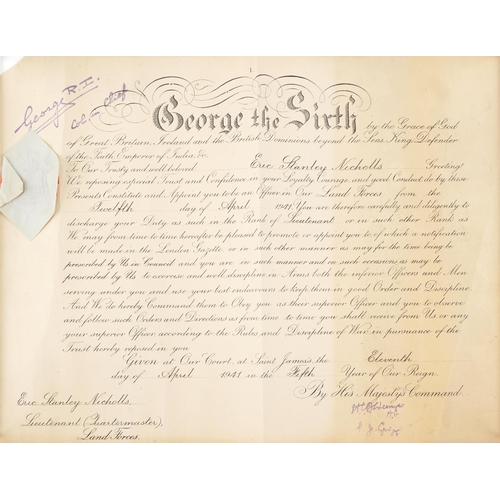 George R.I.
George the Sixth by the Grace of God
of Great Britain, Ireland and the British Dominions beyond the Seas King, Defender
of the Faith, Emperor of India, &c.
To Our Trusty and well beloved Eric Stanley Nicholls Greeting!
We reposing especial Trust and Confidence in your Loyalty, Courage and good Conduct, do by these
Presents Constitute and Appoint you to be an Officer in Our Land Forces from the
Twelfth day of April 1941. You are therefore carefully and diligently to
discharge your Duty as such in the Rank of Lieutenant or in such other Rank as
We may from time to time hereafter be pleased to promote or appoint you to of which a notification
will be made in the London Gazette, or in such other manner as may for the time being be
prescribed by Us in Council and you are in such manner and on such occasions as may be
prescribed by Us to exercise and well discipline in Arms both the inferior Officers and Men
serving under you and use your best endeavours to keep them in good Order and Discipline.
And We do hereby Command them to Obey you as their superior Officer and you to observe
and follow such Orders and Directions as from time to time you shall receive from Us, or any
your superior Officer, according to the Rules and Discipline of War, in pursuance of the
Trust hereby reposed in you.
Given at Our Court, at Saint James's the Eleventh
day of April 1941 in the Fifth Year of Our Reign.
By His Majesty's Command.
Eric Stanley Nicholls,
Lieutenant (Quartermaster),
Land Forces.
P. J. Grigg